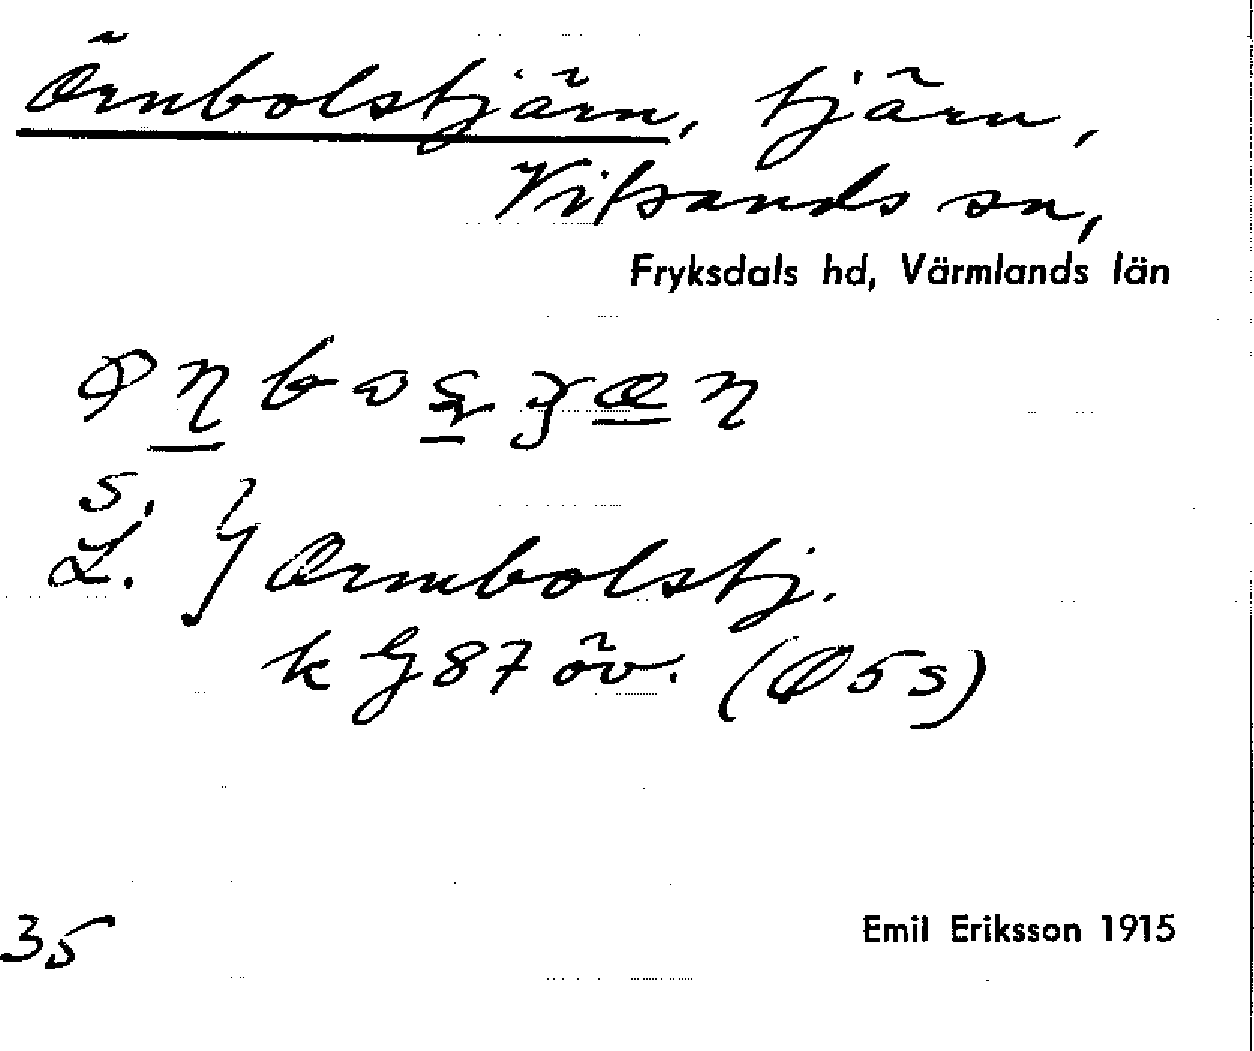 Örnbolstjärn, tjärn,
Vitsands sn,
Fryksdals hd, Värmlands län
S.
L. } Örnbolstj.
k G 87 öv. (Ø5s)
35
Emil Eriksson 1915